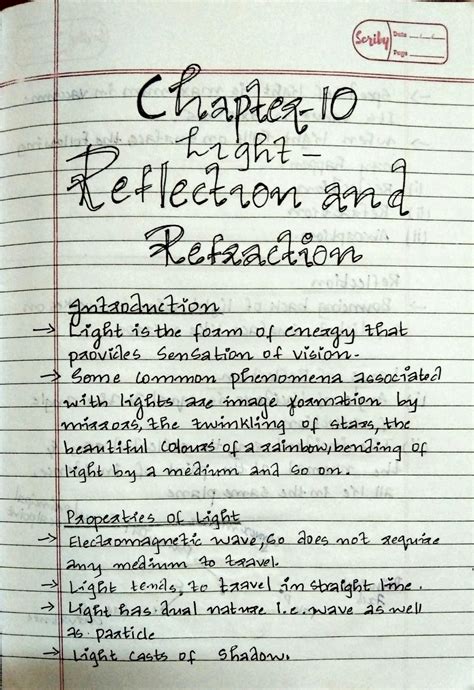 Scriby Date
Page
Chapter-10
Light -
Reflection and
Refraction
Introduction
→ Light is the form of energy that
provides sensation of vision.
→ Some common phenomena associated
with lights are image formation by
mirrors, the twinkling of stars, the
beautiful colours of a rainbow, bending of
light by a medium and so on.
Properties of Light
→ Electromagnetic wave, so does not require
any medium to travel.
→ Light tends, to travel in straight line.
→ Light has dual nature i.e. wave as well
as particle
→ Light casts of shadow.